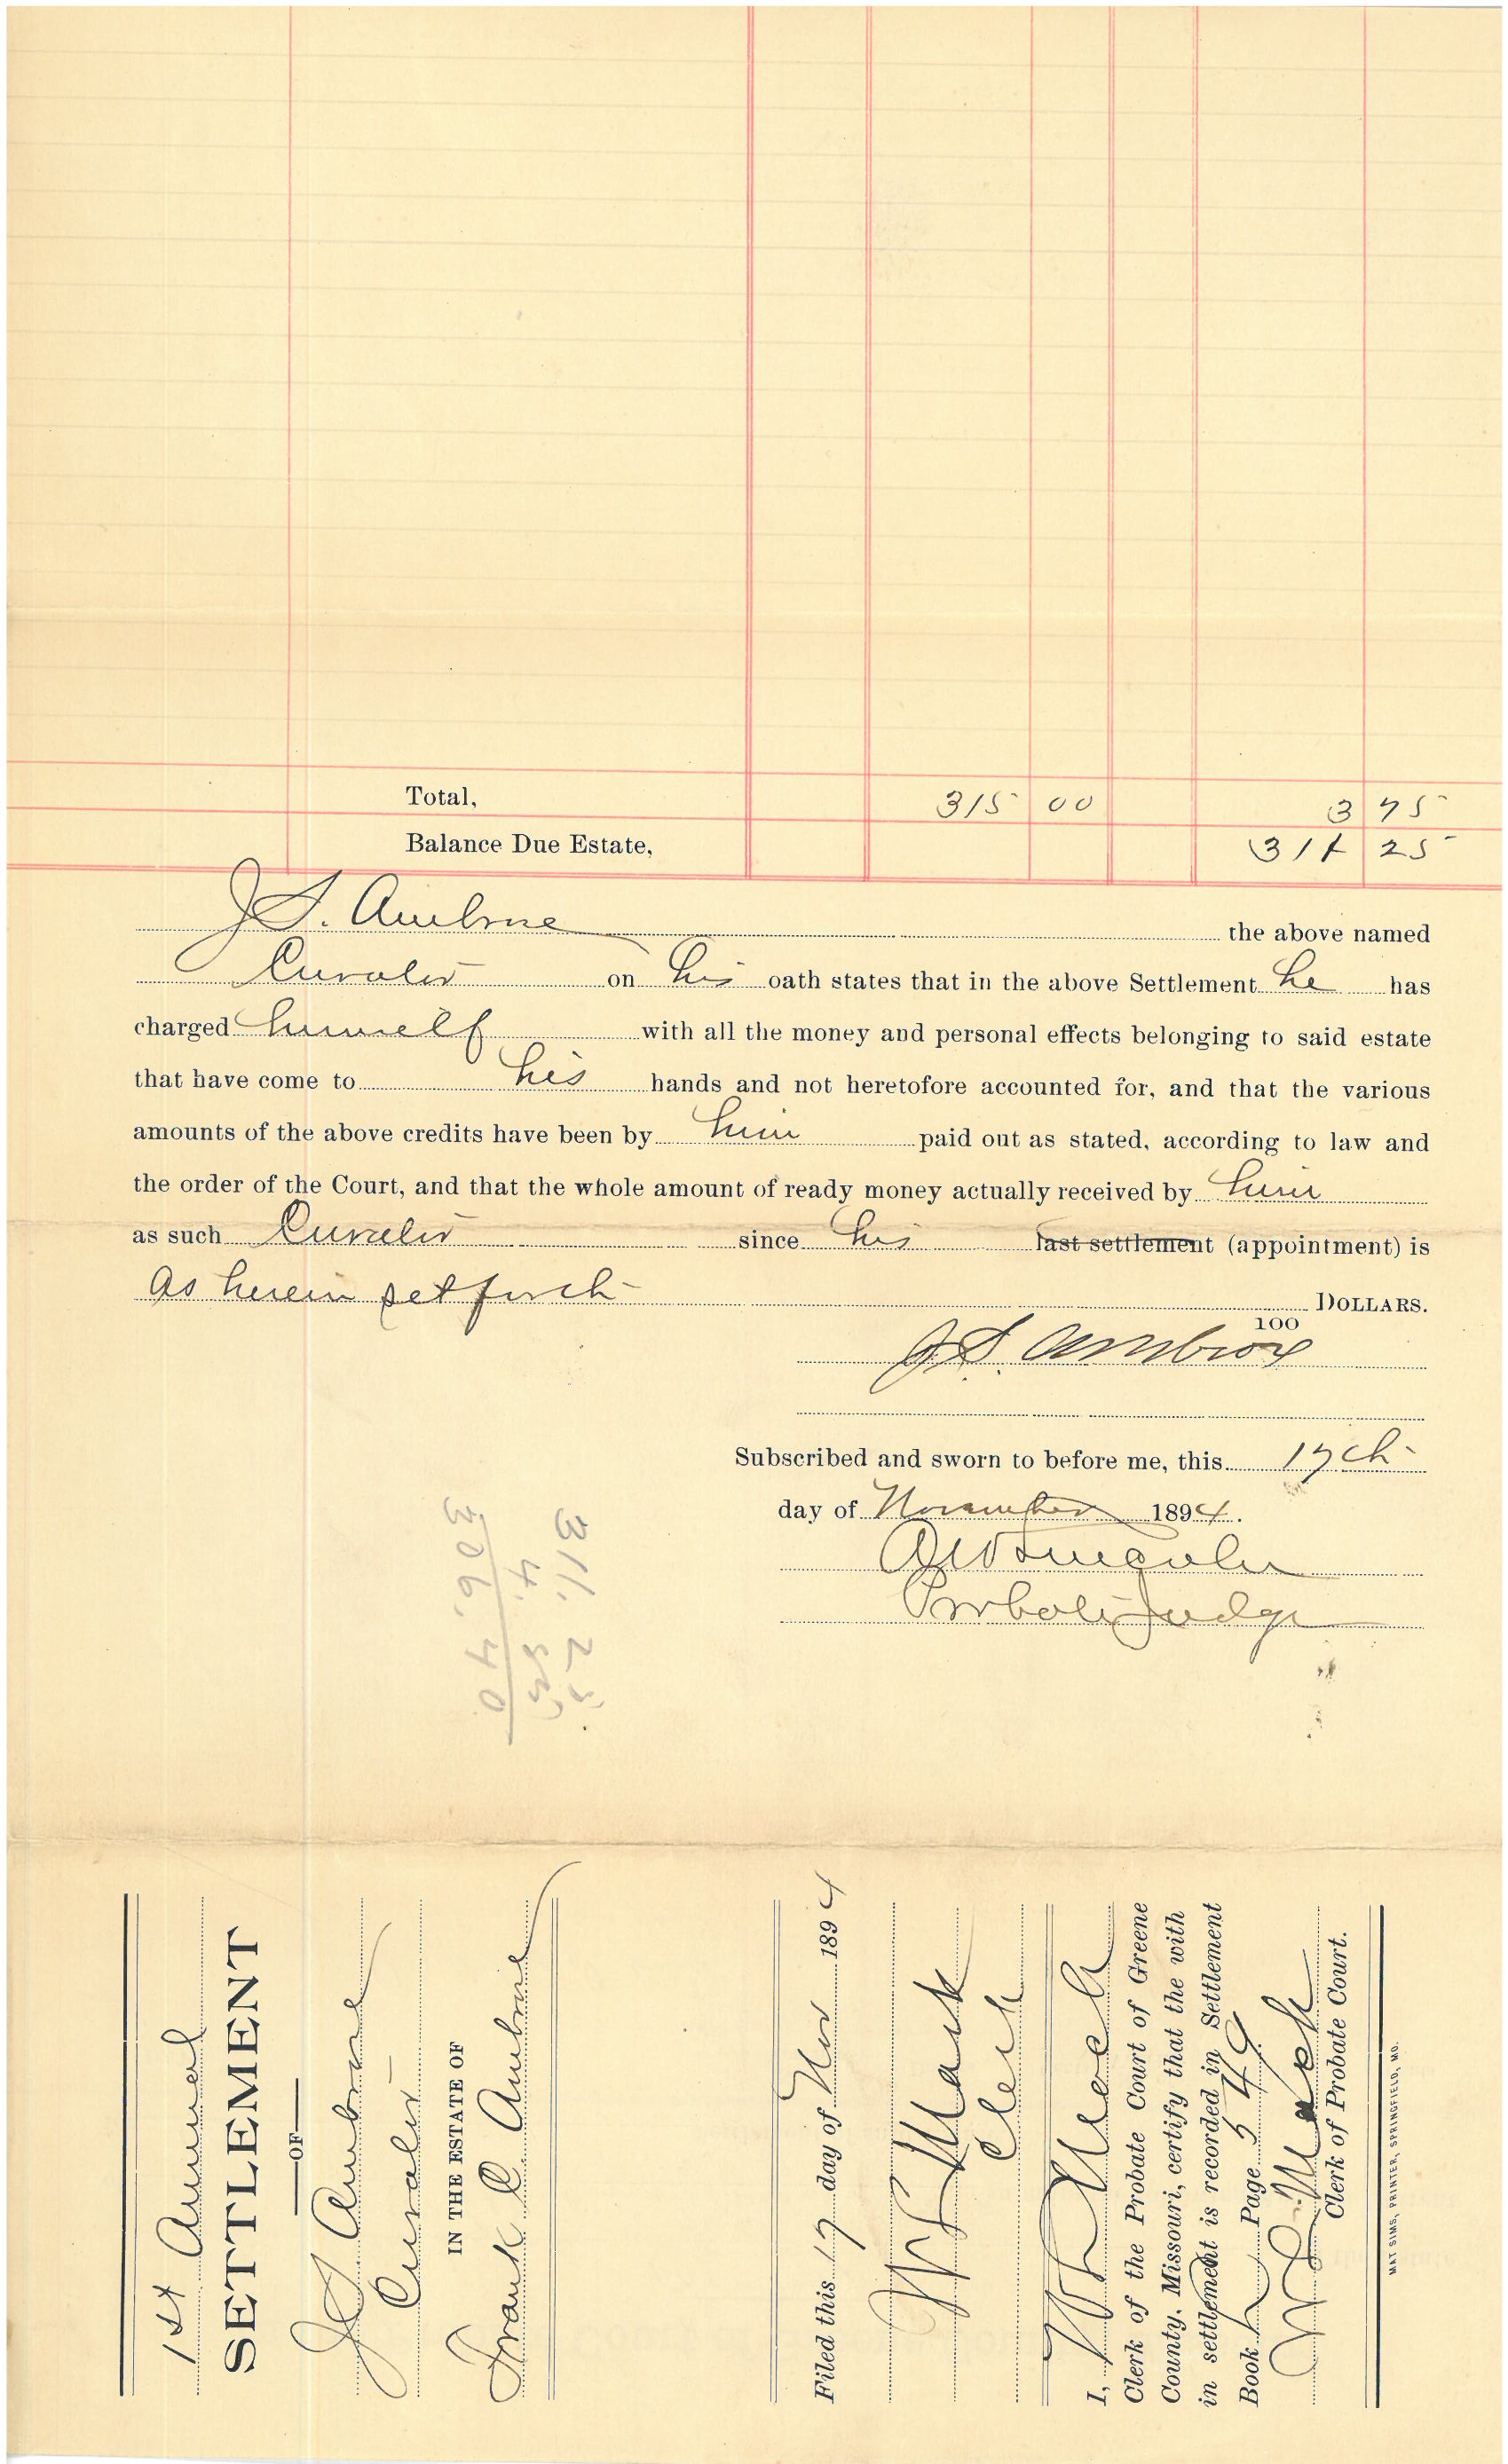 Total, 315 00 3 75
Balance Due Estate, 311 25
J S. Ambrose the above named
Curator on his oath states that in the above Settlement he has
charged himself with all the money and personal effects belonging to said estate
that have come to his hands and not heretofore accounted for, and that the various
amounts of the above credits have been by him paid out as stated, according to law and
the order of the Court, and that the whole amount of ready money actually received by him
as such Curator since his last settlement (appointment) is
As herein set forth DOLLARS.
100
J S. Ambrose
Subscribed and sworn to before me, this 17th
day of November 1894.
Probate Judge
311.25
4.85
306.40
1st Annual
SETTLEMENT
OF
J S Ambrose
Curator
IN THE ESTATE OF
Frank C Ambrose
Filed this 17 day of Nov 1894
Clerk
I,
Clerk of the Probate Court of Greene
County, Missouri, certify that the with
in settlement is recorded in Settlement
Book Page 549
Clerk of Probate Court.
MAT SIMS, PRINTER, SPRINGFIELD, MO.